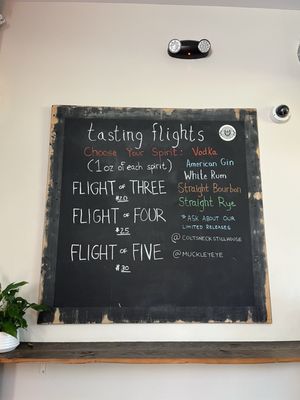 tasting flights
Choose Your Spirit: Vodka
(1oz of each spirit) American Gin
White Rum
FLIGHT OF THREE Straight Bourbon
$20 Straight Rye
FLIGHT OF FOUR * ASK ABOUT OUR
LIMITED RELEASES
$25
@COLTSNECKSTILLHOUSE
FLIGHT OF FIVE @MUCKLEYEYE
$30